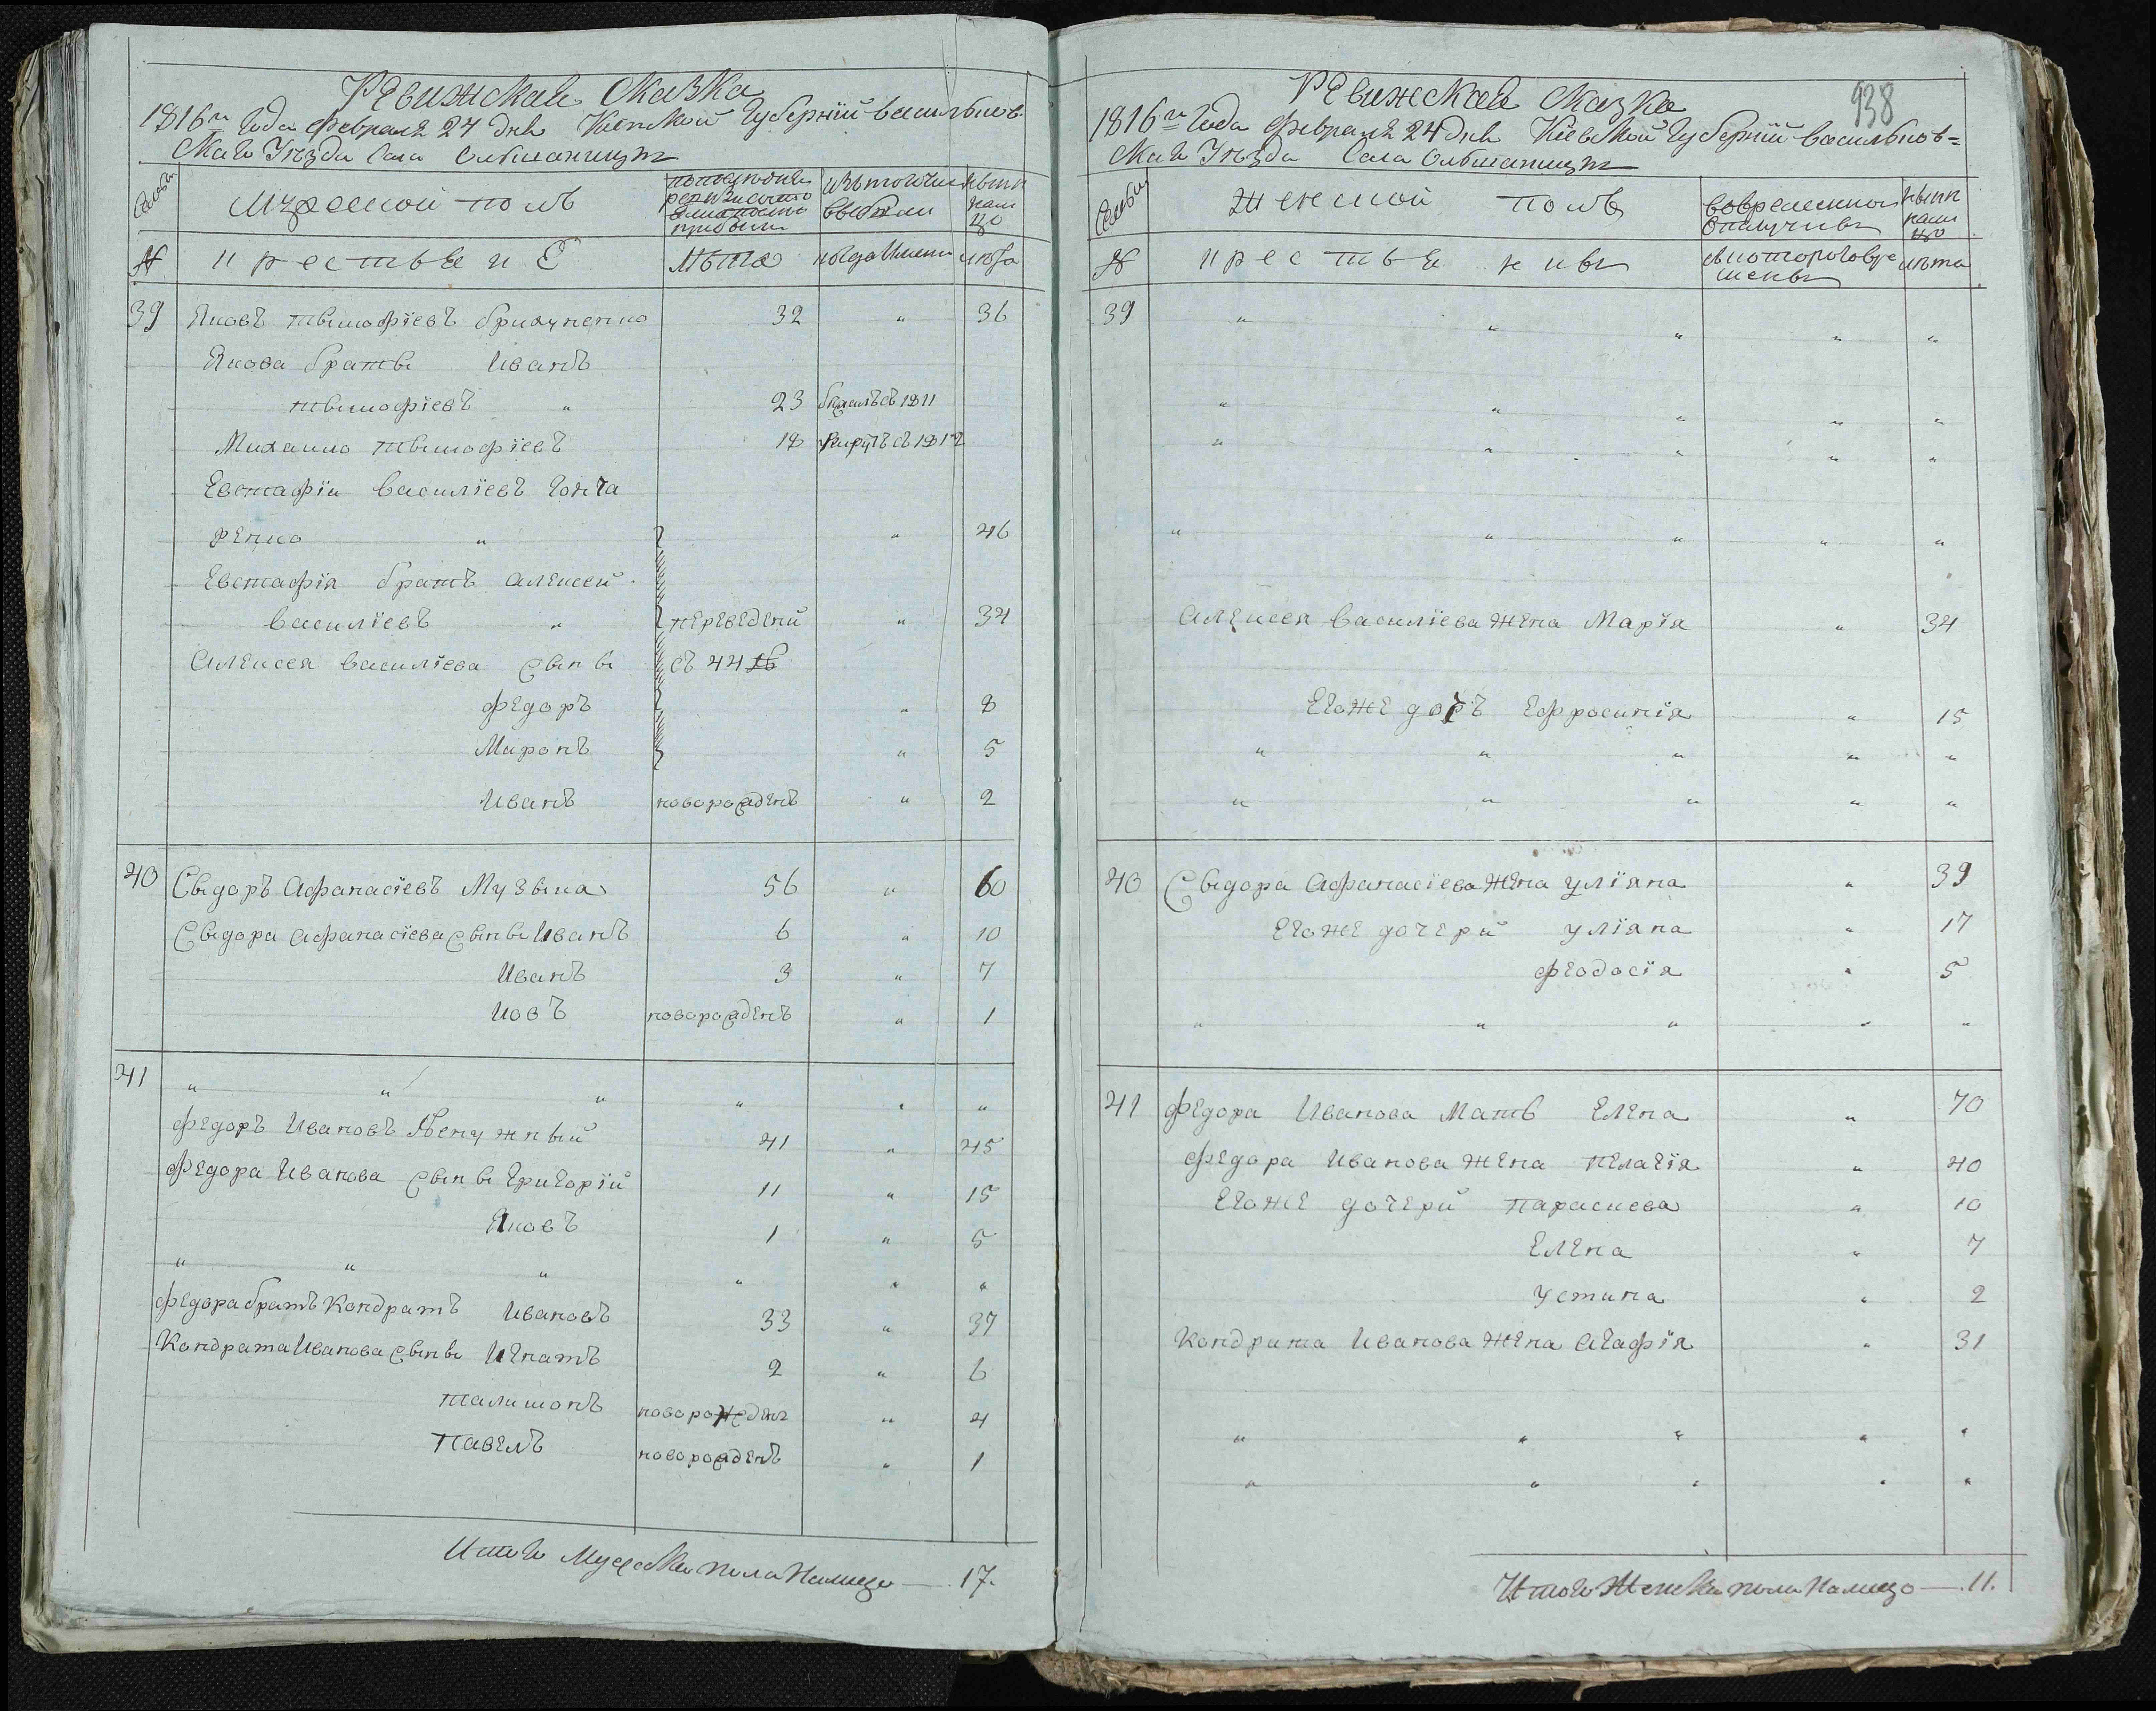 Ревижская сказка
1816го года февраля 24 дня Кіевской губерніи васильков
ская уезда села ольшаницъ
семьи
мужеской полъ
по последней
ревизіи состо
яло и после
прибыли
изъ того числа
выбыли
ныне
нали
цо
№
крестьяне
лѣта
когда именно
лѣта
39 Яковъ тымофіевъ бришупенко 32 " 36
Якова братьы Иванъ
тымофіевъ " 23 бежалъ съ 1811
Михаило тымофіевъ 18 рекрутъ съ 1812
Евстафіи василіевъ гонча
ренко " " 46
Евстафія братъ алексей
василіевъ " переведены " 34
алексея василіева сыны съ 44 №
федоръ " 8
Миронъ " 5
Иванъ новорожденъ " 2
40 Сыдоръ афанасіевъ Музыка 56 " 60
Сыдора афанасіева сыны Иванъ 6 " 10
Иванъ 3 " 7
Иовъ новорожденъ " 1
41 " " " " " "
федоръ Ивановъ Ненужный 41 " 45
федора Иванова сыны григорій 11 " 15
Яковъ 1 " 5
" " " " " "
федора братъ Кондратъ Ивановъ 33 " 37
Кондрата Иванова сыны Игнатъ 2 " 6
талимонъ новорожденъ " 4
Павелъ новорожденъ " 1
Итого Мужеска пола налицо — 17.
938
Ревижская сказка
1816го года февраля 24 дня Кіевской губерніи васильков=
ская уезда села ольшаницъ
семьи
женской полъ
во временной
отлучкы
ныне
нали
цо
№
крестьянкы
с котораго вре
мены
лѣта
39 " " " " "
" " " " "
" " " " "
" " " " "
алексея василіева жена Марія " 34
Егоже дочъ Ефросинія " 15
" " " " "
" " " " "
40 Сыдора афанасіева жена уліяна " 39
Егоже дочери уліяна " 17
феодосія " 5
" " " " "
41 федора Иванова Мать Елена " 70
федора Иванова жена пелагія " 40
Егоже дочери параскева " 10
Елена " 7
устина " 2
Кондрата Иванова жена агафія " 31
" " " " "
" " " " "
Итого Женска пола налицо — 11.